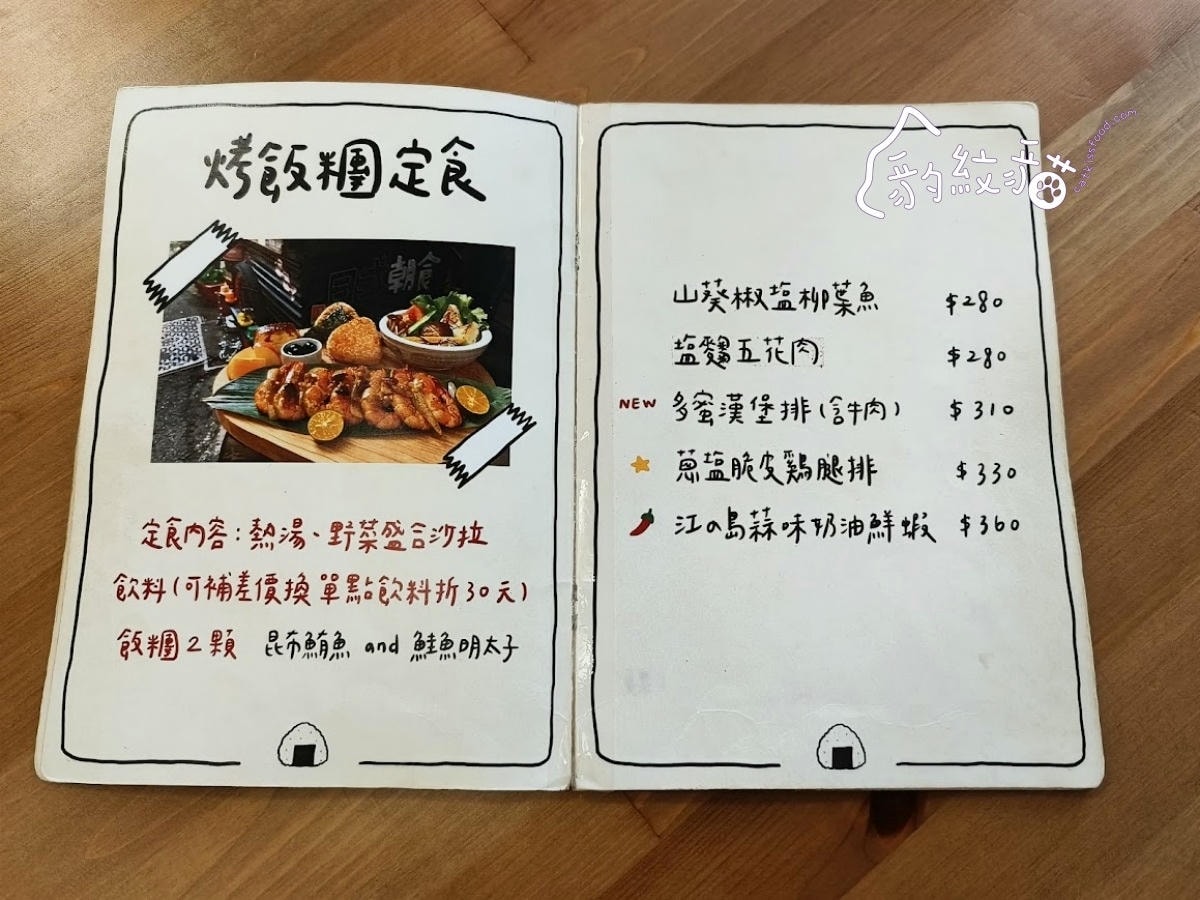 烤飯糰定食
朝食
定食內容：熱湯、野菜盛合沙拉
飲料(可補差價換單點飲料折30元)
飯糰2顆 昆布鮪魚 and 鮭魚明太子
豹紋貓
catkissfood.com
山葵椒塩柳葉魚 $280
塩麴五花肉 $280
NEW 多蜜漢堡排(含牛肉) $310
蔥塩脆皮鷄腿排 $330
江の島蒜味奶油鮮蝦 $360